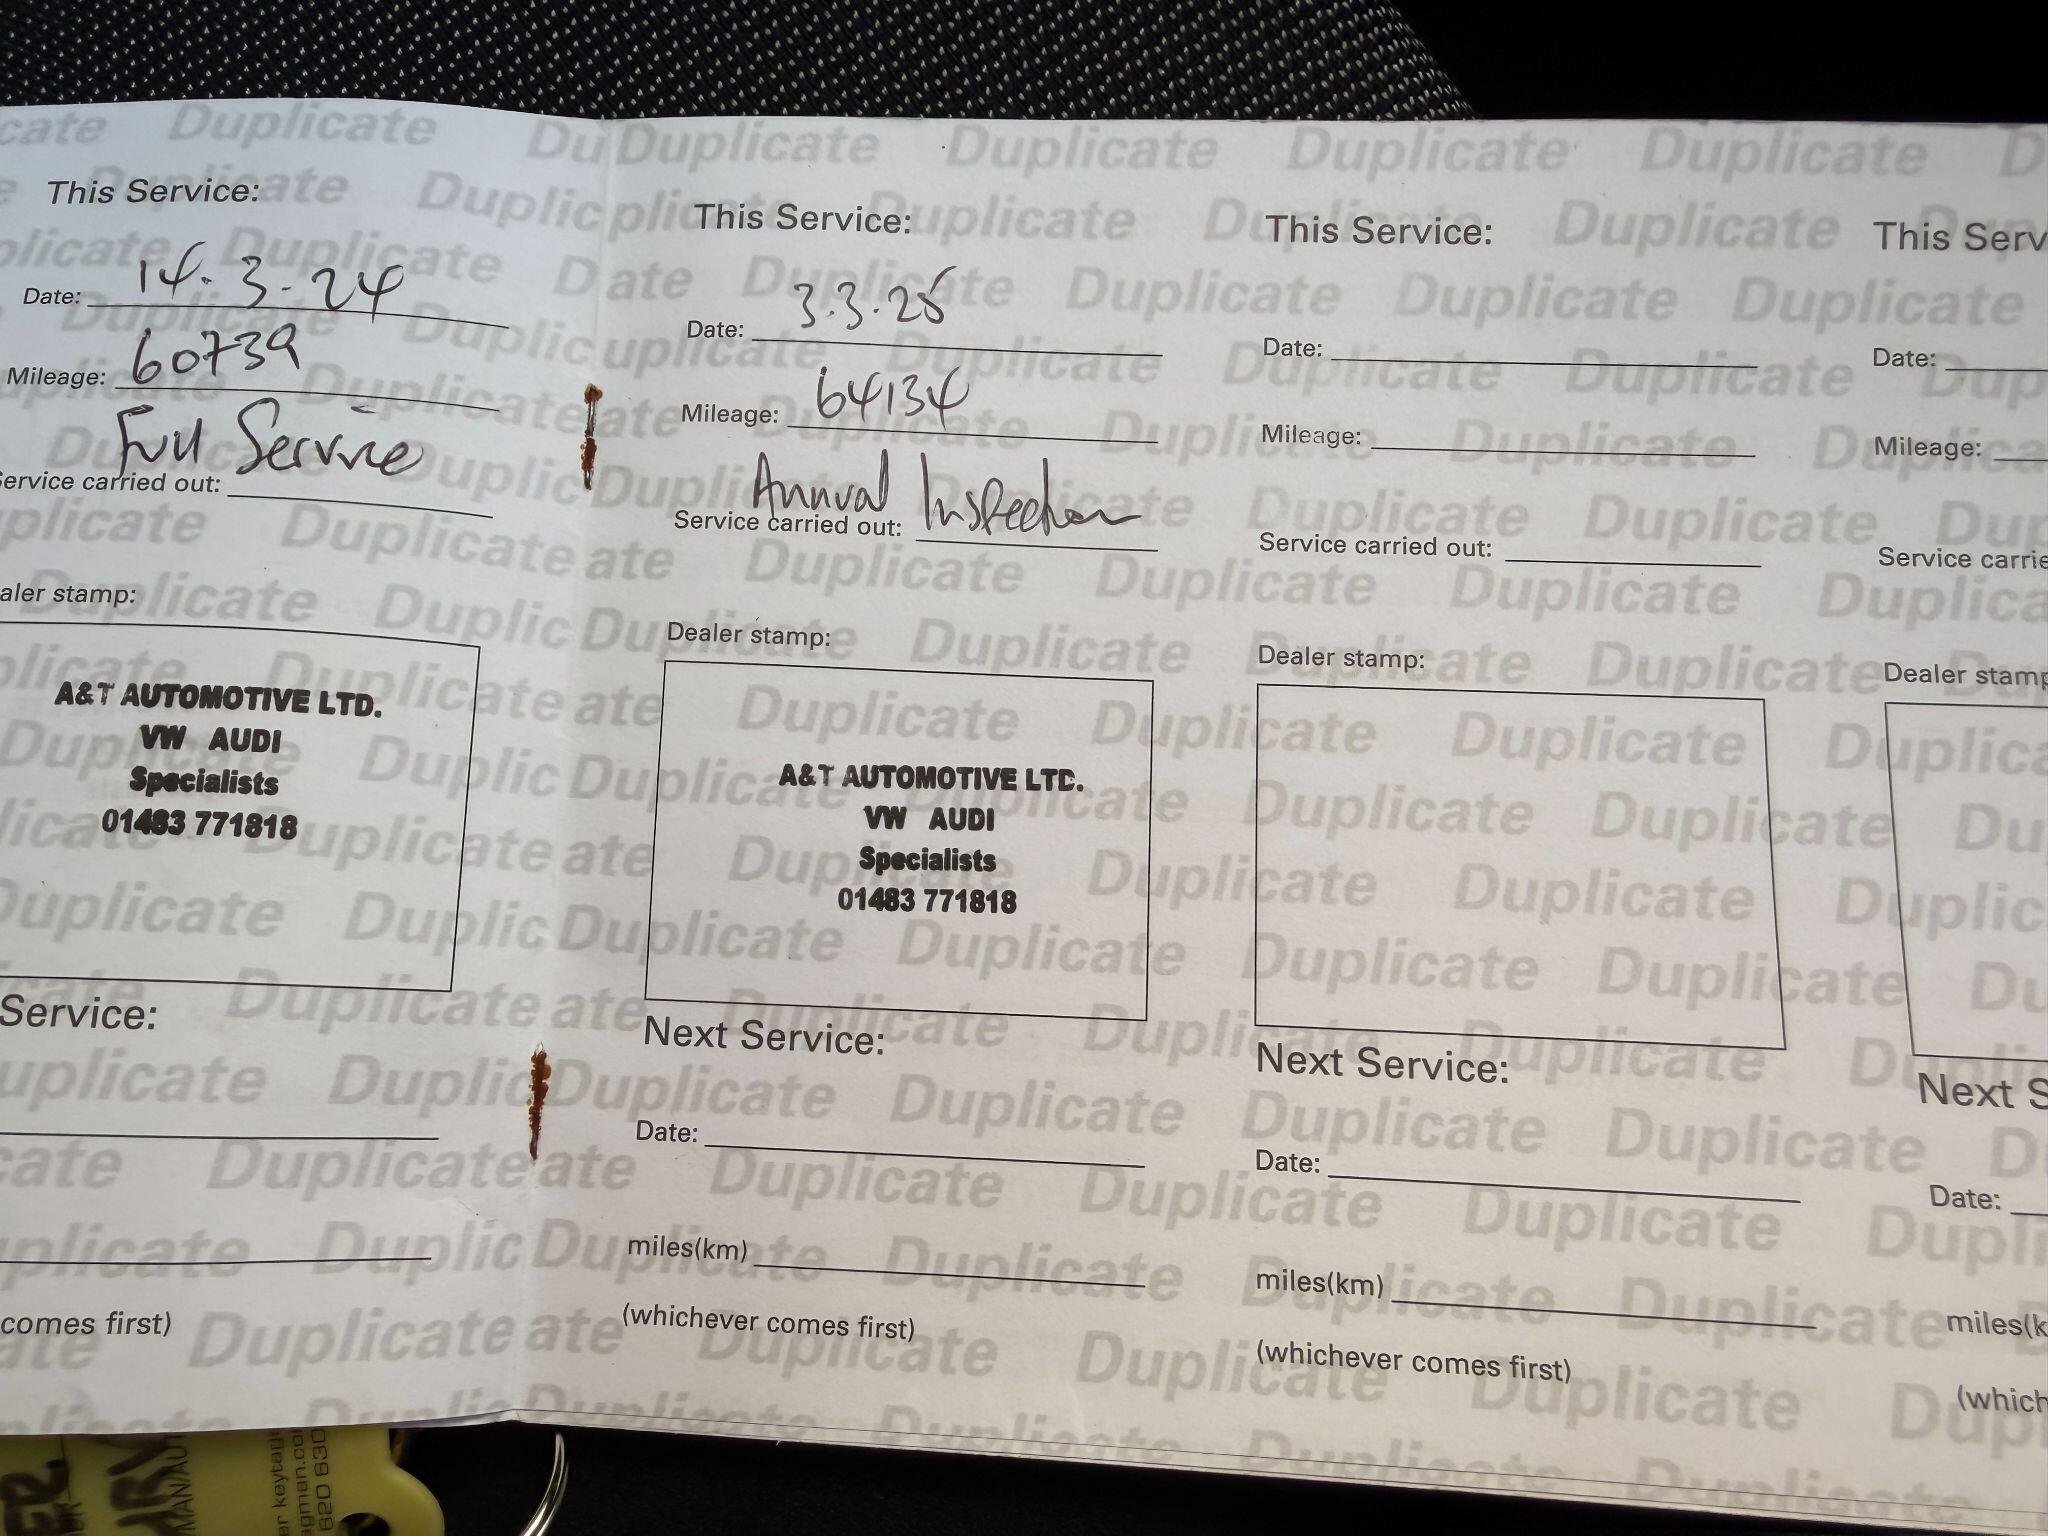 This Service:
Date: 14.3.24
Mileage: 60739
Full Service
Service carried out:
aler stamp:
A&T AUTOMOTIVE LTD.
VW AUDI
Specialists
01483 771818
Service:
comes first)
This Service:
Date: 3.3.25
Mileage: 64134
Annual Inspection
Service carried out:
Dealer stamp:
A&T AUTOMOTIVE LTD.
VW AUDI
Specialists
01483 771818
Next Service:
Date:
miles(km)
(whichever comes first)
This Service:
Date:
Mileage:
Service carried out:
Dealer stamp:
Next Service:
Date:
miles(km)
(whichever comes first)
This Serv
Date:
Mileage:
Service carrie
Dealer stamp
Next S
Date:
miles(k
(which
Duplicate Duplicate Duplicate Duplicate Duplicate